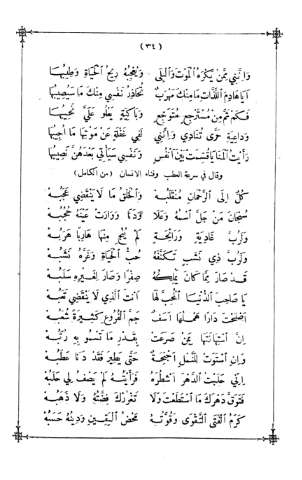 (٣٤)
وَإِنَّنِي مِمَّنْ يَكْرَهُ الْمَوْتَ وَالْبِلَى وَيُعْجِبُهُ رِيحُ الْحَيَاةِ وَطِيبُهَا
أَيَا هَادِمَ اللَّذَّاتِ مَا مِنْكَ مَهْرَبٌ تُحَاذِرُ نَفْسِي مِنْكَ مَا سَيُصِيبُهَا
فَكَمْ ثَمَّ مِنْ مُسْتَرْجِعٍ مُتَوَجِّعٍ وَبَاكِيَةٍ يَعْلُو عَلَيَّ نَحِيبُهَا
وَدَاعِيَةٍ حَرَّى تُنَادِي وَإِنَّنِي لَفِي غَفْلَةٍ عَنْ صَوْتِهَا مَا أُجِيبُهَا
رَأَيْتُ الْمَنَايَا قُسِمَتْ بَيْنَ أَنْفُسٍ وَنَفْسِي سَيَأْتِي بَعْدَهُنَّ نَصِيبُهَا
وقال في سرعة العطب وفناء الانسان (من الكامل)
كُلٌّ إِلَى الرَّحْمَانِ مُنْقَلَبُهْ وَالْخَلْقُ مَا لَا يَنْقَضِي عَجَبُهْ
سُبْحَانَ مَنْ جَلَّ اسْمُهُ وَعَلَا وَدَنَا وَوَارَتْ عَيْنَهُ حُجُبُهْ
وَلَرُبَّ غَادِيَةٍ وَرَائِحَةٍ لَمْ يُنْجِ مِنْهَا هَارِبًا هَرَبُهْ
وَلَرُبَّ ذِي نَشَبٍ تَكَنَّفَهُ حُبُّ الْحَيَاةِ وَغَرَّهُ نَشَبُهْ
قَدْ صَارَ مِمَّا كَانَ يَمْلِكُهُ صِفْرًا وَصَارَ لِغَيْرِهِ سَلَبُهْ
يَا صَاحِبَ الدُّنْيَا الْمُحِبَّ لَهَا أَنْتَ الَّذِي لَا يَنْقَضِي تَعَبُهْ
أَصْلَحْتَ دَارًا هَمُّهَا أَسَفٌ جَمُّ الْفُرُوعِ كَثِيرَةٌ شُعَبُهْ
إِنَّ اسْتِهَانَتَهَا بِمَنْ صَرَعَتْ بِقَدْرِ مَا تَسْمُو بِهِ رُتَبُهْ
وَإِنِ اسْتَوَتْ لِلنَّمْلِ أَجْنِحَةٌ حَتَّى يَطِيرَ فَقَدْ دَنَا عَطَبُهْ
إِنِّي حَلَبْتُ الدَّهْرَ أَشْطُرَهُ فَرَأَيْتُهُ لَمْ يَصْفُ لِي حَلَبُهْ
فَتَوَقَّ دَهْرَكَ مَا اسْتَطَعْتَ وَلَا تَغْرُرْكَ فِضَّتُهُ وَلَا ذَهَبُهْ
كَرَمُ الْفَتَى التَّقْوَى وَقُوَّتُهُ مَحْضُ الْيَقِينِ وَدِينُهُ حَسَبُهْ